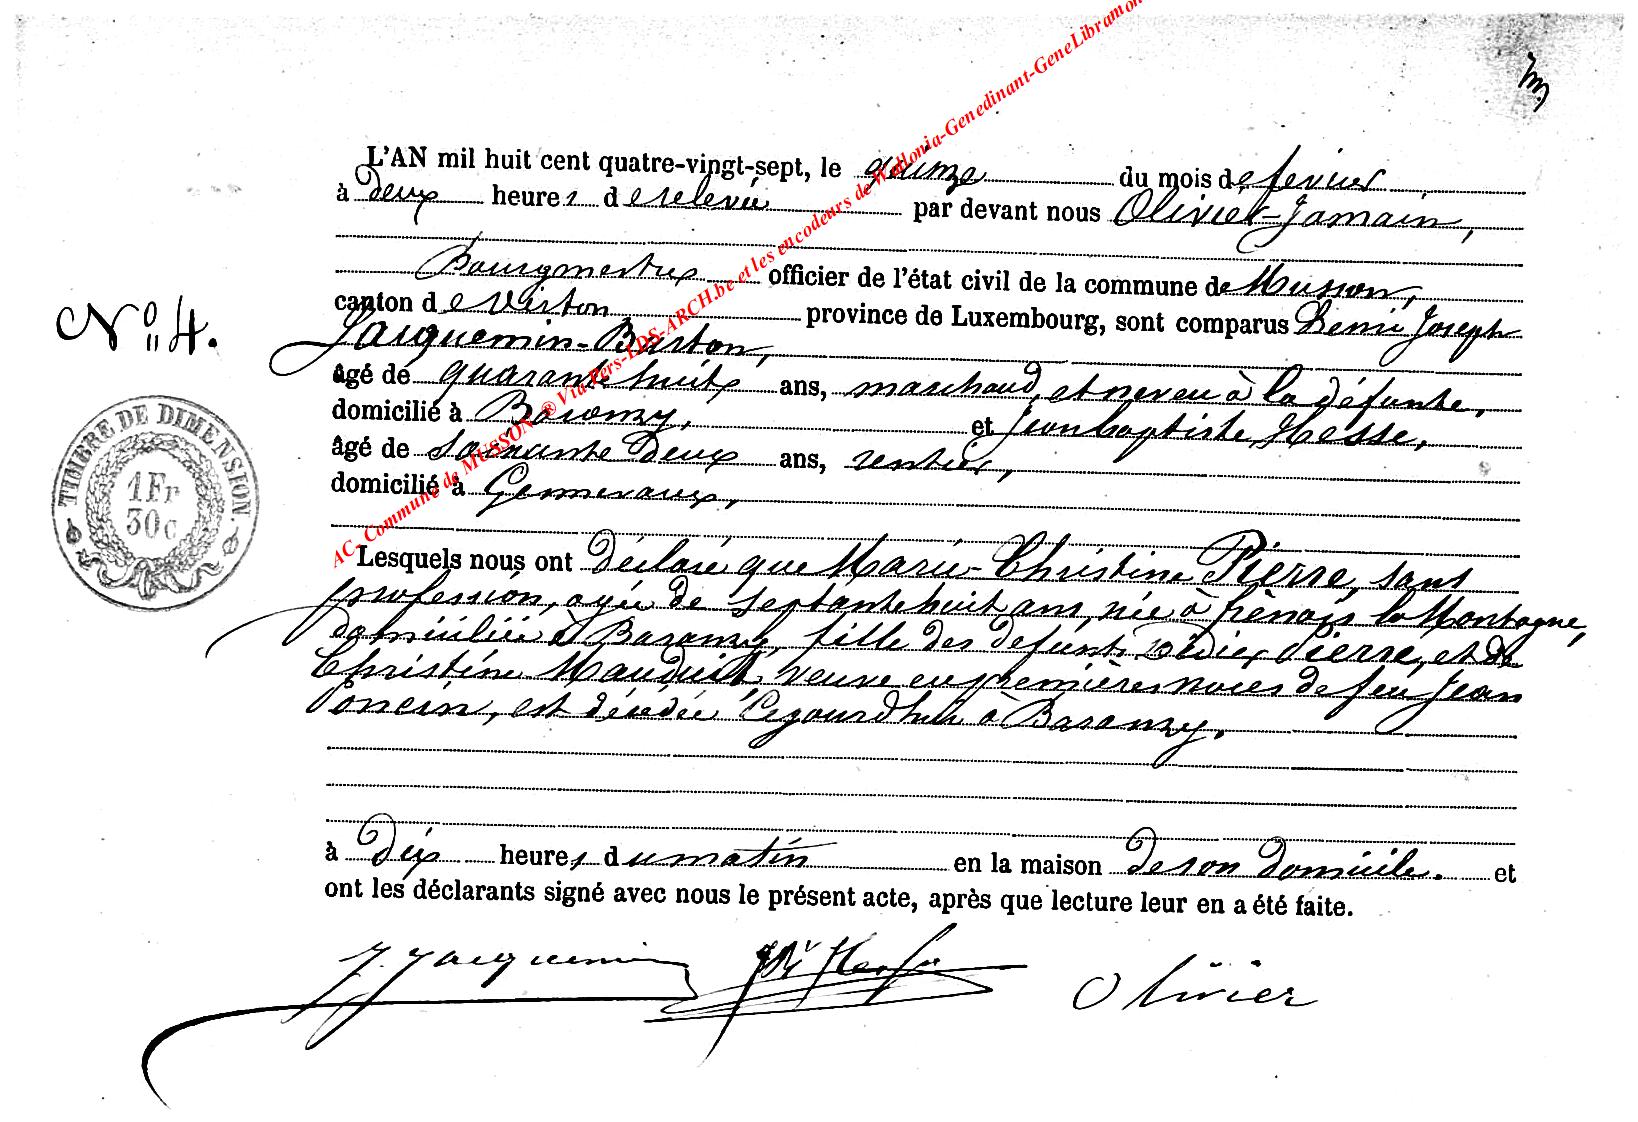 L'AN mil huit cent quatre-vingt-sept, le quinze du mois de février
à deux heures de relevée par devant nous Olivier-Jamain,
Bourgmestre officier de l'état civil de la commune de Musson,
canton de Virton province de Luxembourg, sont comparus Henri Joseph
N° 4.
Jacquemin-Burton,
âgé de quarante huit ans, marchand, et neveu à la défunte,
domicilié à Baranzy, et Jean Baptiste Hesse,
âgé de soixante deux ans, rentier,
domicilié à Gennevaux,
TIMBRE DE DIMENSION.
1 Fr
30c
Lesquels nous ont déclaré que Marie-Christine Pierre, sans
profession, agée de septante huit ans, née à la Montagne,
domiciliée à Baranzy, fille des défunts Pierre, et de
Christine Mauduit, veuve en premières noces de feu Jean
Poncin, est décédée cejourd'hui à Baranzy.
à dix heures du matin en la maison de son domicile. et
ont les déclarants signé avec nous le présent acte, après que lecture leur en a été faite.
J. Jacquemin Hesse Olivier
AC- Commune de MUSSON ® Via Pers-LDS-ARCH.be et les encodeurs de Wallonia-Genedinant-GeneLibramon